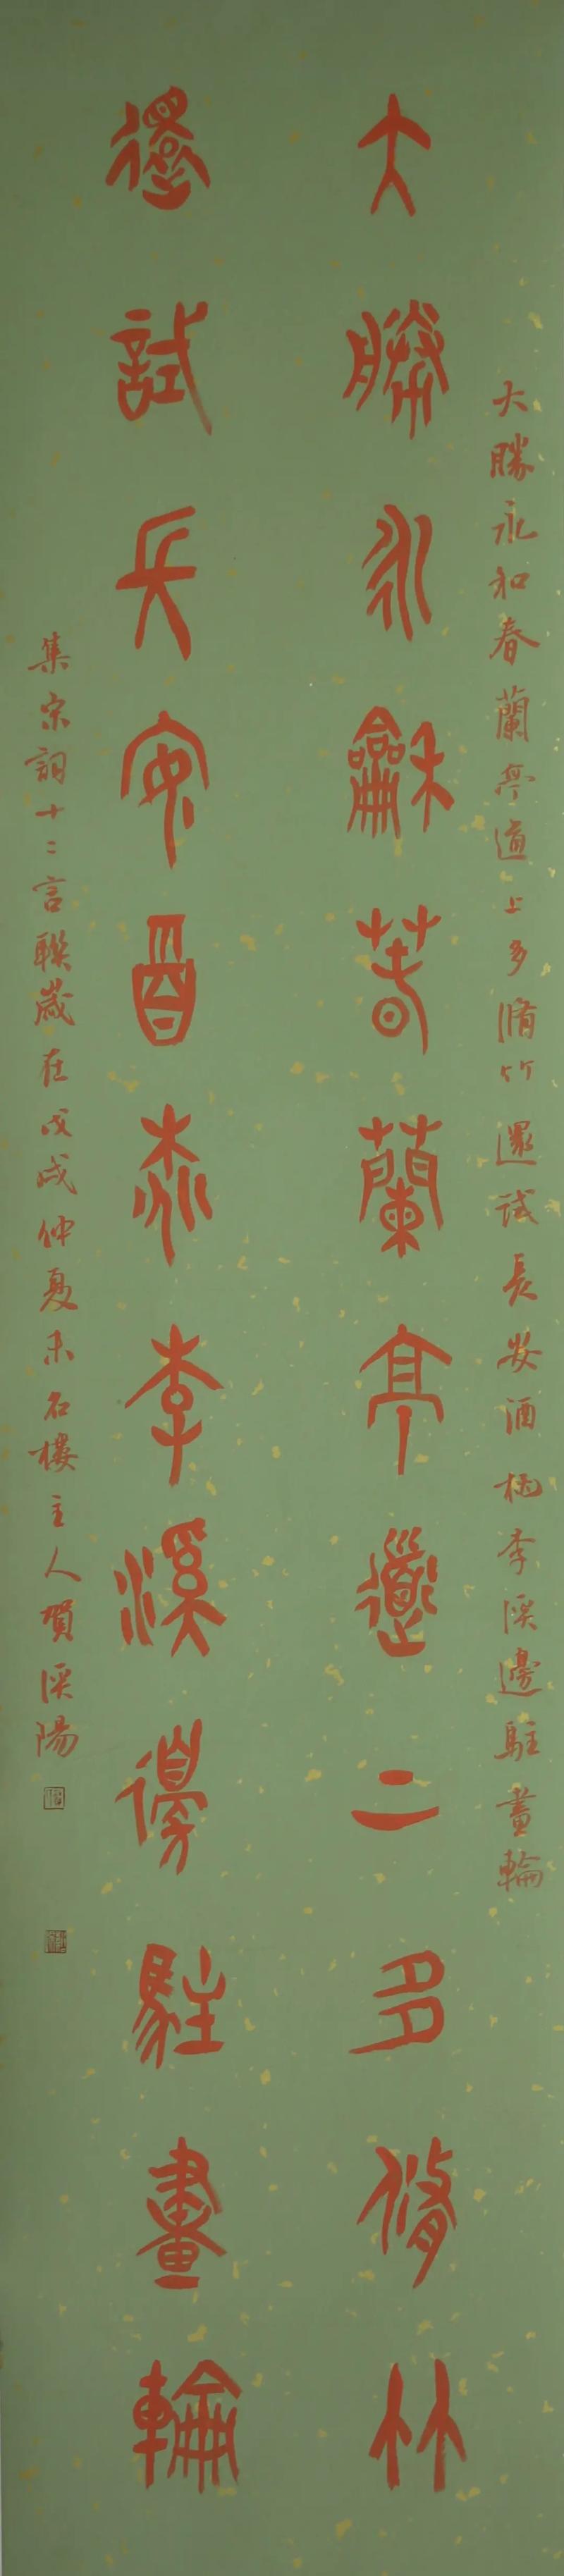 大勝永和春蘭亭道上多脩竹還試長安酒桃李溪邊駐畫輪
大勝永龢春蘭亭道二多脩竹
還試長安酉桃李溪邊駐畫輪
集宋詞十二言聯歲在戊戌仲夏未石樓主人賀溪陽